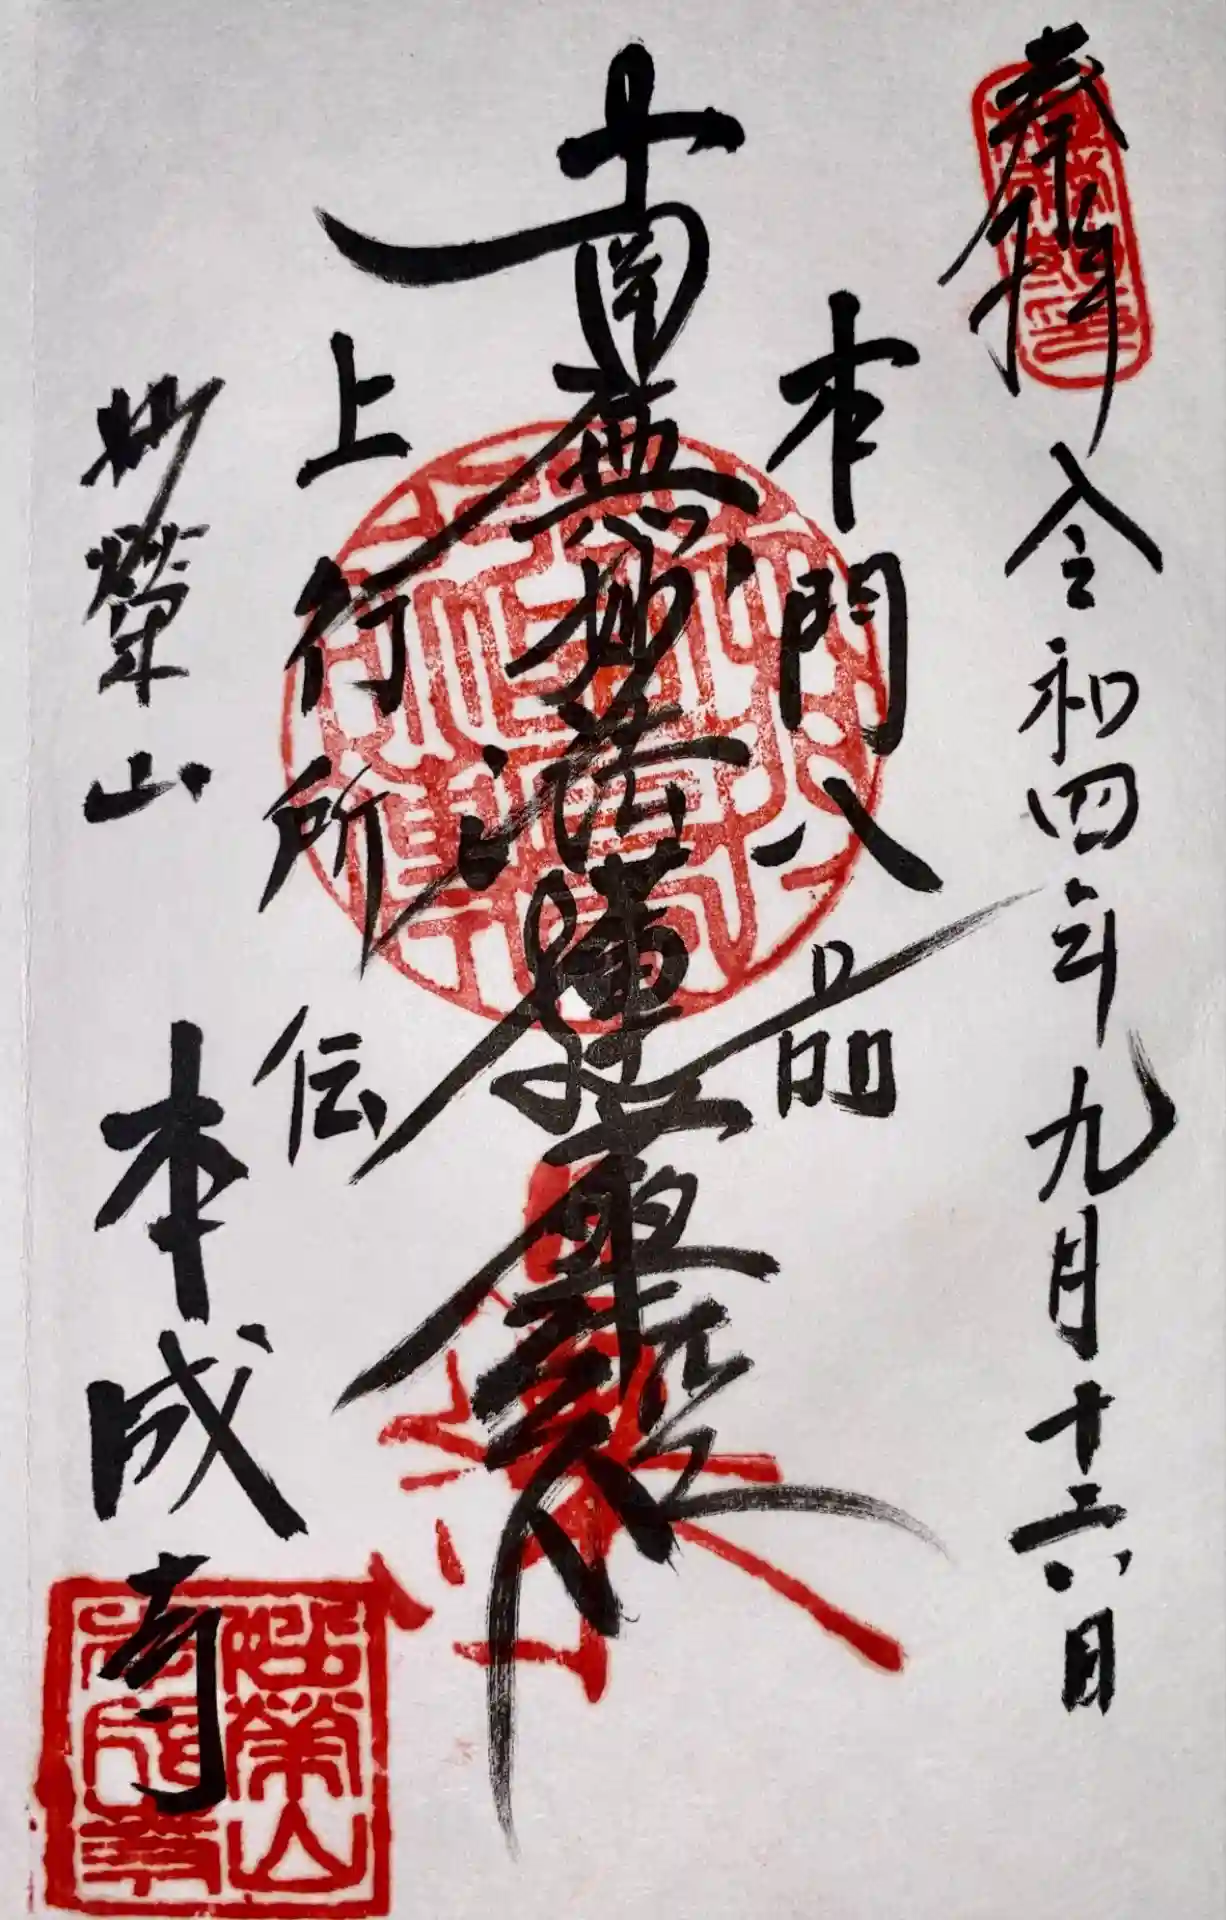 奉拝 令和四年九月十六日
本門八品
南無妙法蓮華経
上行所伝
妙榮山 本成寺